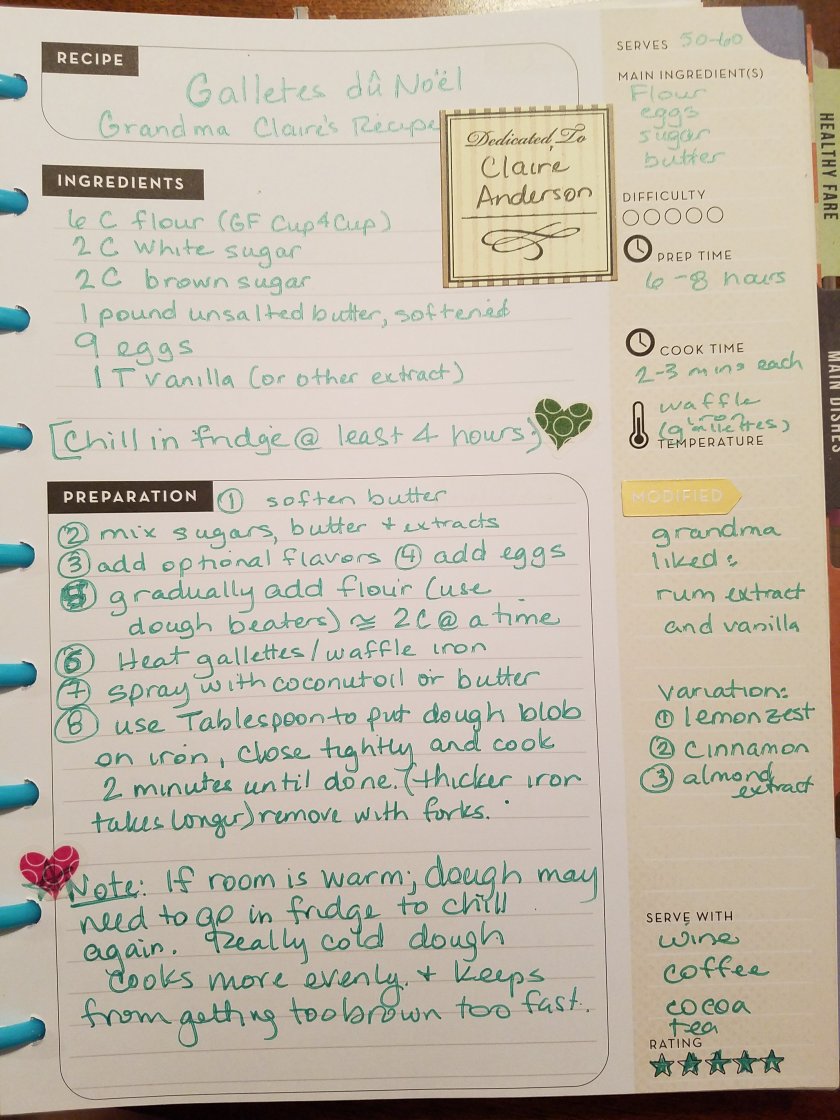 RECIPE
Galletes dû Noël
Grandma Claire's Recipe
Dedicated To
Claire
Anderson
INGREDIENTS
6 C flour (GF Cup4Cup)
2 C White sugar
2 C brown sugar
1 pound unsalted butter, softened
9 eggs
1 T vanilla (or other extract)
[Chill in fridge @ least 4 hours]
PREPARATION ① soften butter
② mix sugars, butter + extracts
③ add optional flavors ④ add eggs
⑤ gradually add flour (use
dough beaters) ≅ 2C @ a time
⑥ Heat gallettes/waffle iron
⑦ spray with coconut oil or butter
⑧ use Tablespoon to put dough blob
on iron, close tightly and cook
2 minutes until done. (thicker iron
takes longer) remove with forks.
Note: If room is warm; dough may
need to go in fridge to chill
again. Really cold dough
cooks more evenly. + keeps
from getting too brown too fast.
SERVES 50-60
MAIN INGREDIENT(S)
Flour
eggs
sugar
butter
DIFFICULTY
PREP TIME
6-8 hours
COOK TIME
2-3 mins each
waffle
iron
(gallettes)
TEMPERATURE
MODIFIED
grandma
liked:
rum extract
and vanilla
Variation:
① lemon zest
② Cinnamon
③ almond
extract
SERVE WITH
wine
coffee
cocoa
tea
RATING
HEALTHY FARE
MAIN DISHES